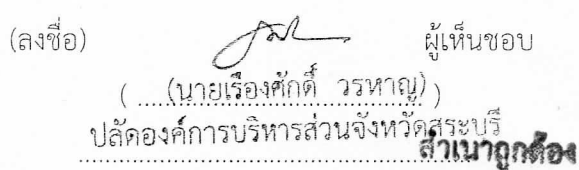 (ลงชื่อ) ผู้เห็นชอบ
( (นายเรืองศักดิ์ วรหาญ) )
ปลัดองค์การบริหารส่วนจังหวัดสระบุรี
สำเนาถูกต้อง